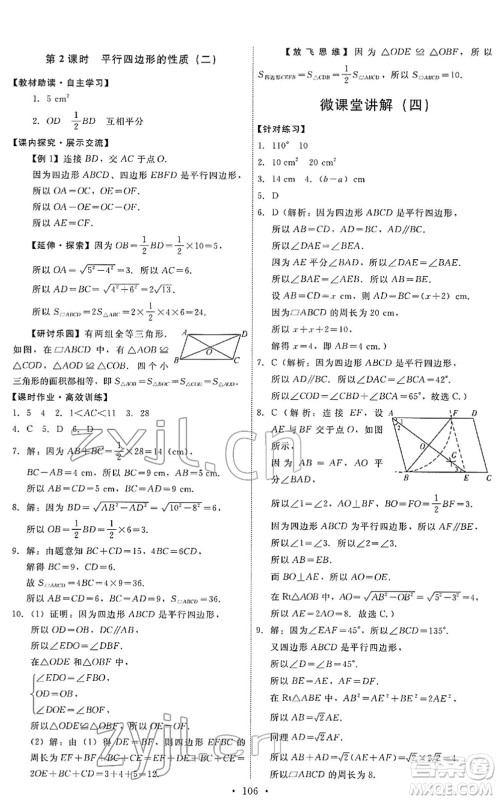 第2课时　平行四边形的性质（二）
【教材助读·自主学习】
1. 5 cm²
2. OD　1/2 BD　互相平分
【课内探究·展示交流】
【例1】连接 BD，交 AC 于点 O.
因为四边形 ABCD、四边形 EBFD 是平行四边形，
所以 OA＝OC，OE＝OF.
所以 OA－OE＝OC－OF.
所以 AE＝CF.
【延伸·探索】因为 OB＝1/2 BD＝1/2×10＝5，
所以 OA＝√(5²－4²)＝3.
所以 AD＝BC＝√(4²＋6²)＝2√13.
所以 S□ABCD＝2S△ABC＝2×1/2×6×4＝24.
【研讨乐园】有两组全等三角形.
如图，在□ABCD 中，有△AOB≌
△COD，△AOD≌△COB. 四个小
三角形的面积都相等，即 S△AOB＝S△BOC＝S△COD＝S△AOD.
【课时作业·高效训练】
1. 5　4　2. 1＜AC＜11　3. 28
4. C　5. D　6. D
7. 解：因为 AB＋BC＝1/2×28＝14(cm)，
BC－AB＝4 cm，所以 AB＝5 cm，BC＝9 cm.
8. 解：因为 BD＝√(AB²－AD²)＝√(10²－8²)＝6，
所以 OB＝1/2 BD＝1/2×6＝3.
9. 解：由题意知 BC＋CD＝15，4BC＝6CD.
解得 BC＝9，CD＝6.
故 S□ABCD＝4BC＝4×9＝36.
10. （1）证明：因为四边形 ABCD 是平行四边形，
所以 OD＝OB，DC∥AB.
所以∠EDO＝∠FBO.
在△ODE 和△OBF 中，
∠EDO＝∠FBO，
OD＝OB，
∠DOE＝∠BOF，
所以△ODE≌△OBF. 所以 DE＝BF.
（2）解：由（1）得 DE＝BF，则四边形 EFBC 的
周长为 EF＋BF＋BC＋CE＝OE＋OF＋DE＋
CE＋BC＝3＋3＋4＋5＝15.
【放飞思维】因为△ODE≌△OBF，所以
S四边形CEFB＝S△CDB＝1/2 S□ABCD. 所以 S＝10.
微课堂讲解（四）
【针对练习】
1. 110°　10
2. 10 cm²　20 cm²
3. 14 cm　4. (b－a) cm
5. D
6. D（解析：因为四边形 ABCD 是平行四边形，
所以 AB＝CD，AD＝BC，AD∥BC.
所以∠DAE＝∠BEA.
因为 AE 平分∠BAD，所以∠BAE＝∠DAE.
所以∠BAE＝∠BEA. 所以 AB＝BE.
设 AB＝x cm，则 AD＝BC＝(x＋2) cm.
因为□ABCD 的周长为 20 cm，
所以 x＋x＋2＝10.
解得 x＝4.）
7. C（解析：因为四边形 ABCD 是平行四边形，
所以 AD∥BC. 所以∠CBD＝∠ADB＝42°.
所以∠COD＝∠CBD＋∠ACB＝67°.）
8. C（解析：连接 EF，设
AE 与 BF 交于点 O，如
图所示.
因为 AB＝AF，AE 平
分∠BAD，
所以 AE⊥BF，∠BAE＝∠FAE，BO＝FO＝1/2 BF
＝3.
因为四边形 ABCD 为平行四边形，所以 AF∥BE.
所以∠FAE＝∠AEB. 所以∠BAE＝∠AEB.
所以 AB＝BE.
而 BO⊥AE，所以 AO＝OE.
在 Rt△AOB 中，AO＝√(AB²－OB²)＝√(5²－3²)＝4，
所以 AE＝2AO＝8. 故选 C.）
9. 解：因为∠EAF＝45°，所以∠C＝135°.
又四边形 ABCD 是平行四边形，
所以∠B＝∠D＝45°.
在 Rt△ABE 中，因为∠B＝45°，
所以 AB＝√2AE.
同理可证，AD＝√2AF.
所以 AB＋AD＝√2(AE＋AF)＝4.
所以□ABCD 的周长为 4×2＝8.
106
zyjl.cn